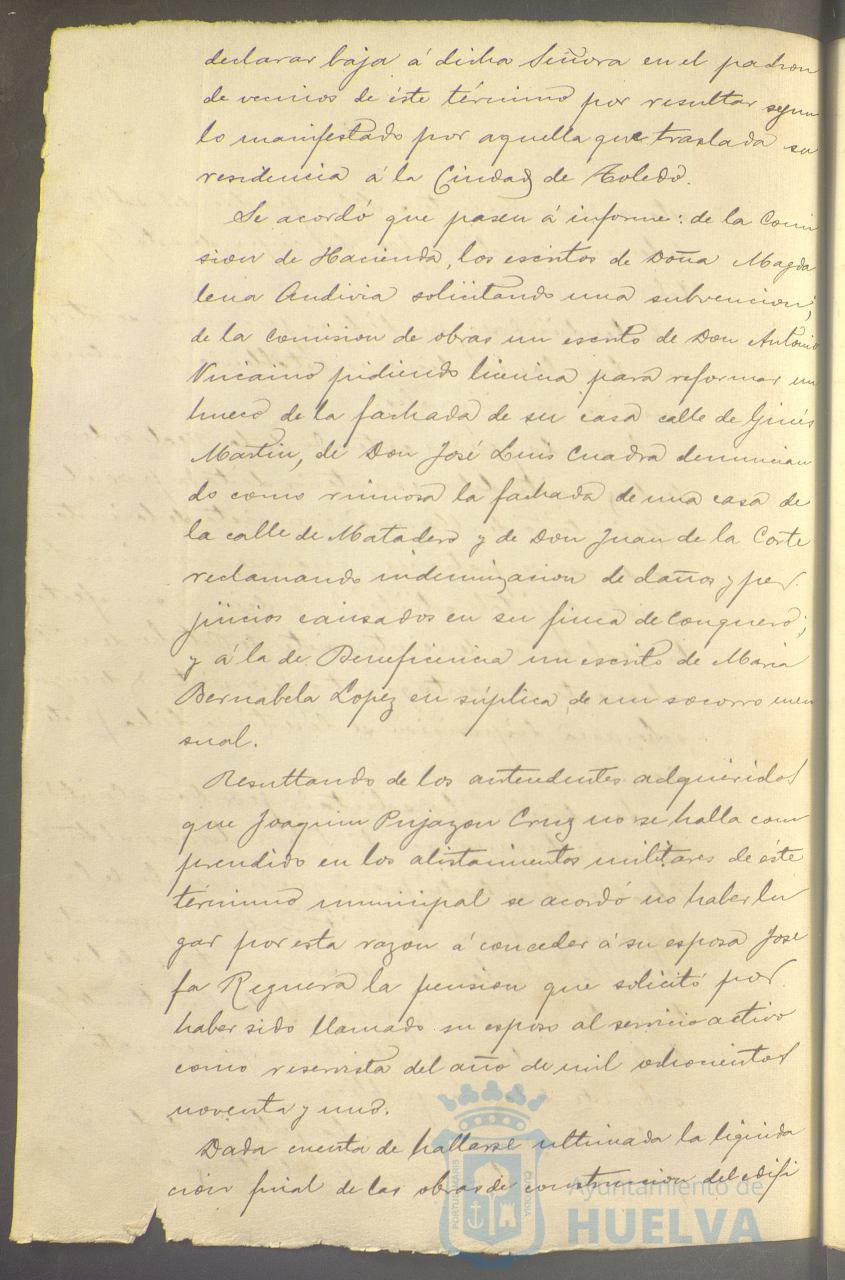 declarar baja á dicha Señora en el padron
de vecinos de éste término por resultar segun
lo manifestado por aquella que traslada su
residencia á la Ciudad de Toledo.
Se acordó que pasen á informe: de la Comi
sion de Hacienda, los escritos de Doña Magda
lena Andivia solicitando una subvencion;
de la Comision de obras un escrito de Don Antonio
Vizcaino pidiendo licencia para reformar un
hueco de la fachada de su casa calle de Ginés
Martin, de Don José Luis Cuadra denuncian
do como ruinosa la fachada de una casa de
la calle de Matadero y de Don Juan de la Corte
reclamando indemnizacion de daños y per
juicios causados en su finca de Conquero;
y á la de Beneficencia un escrito de Maria
Bernabela Lopez en súplica de un socorro men
sual.
Resultando de los antecedentes adquiridos
que Joaquin Pujazon Cruz no se halla com
prendido en los alistamientos militares de éste
término municipal se acordó no haber lu
gar por esta razon á conceder á su esposa Jose
fa Reguera la pension que solicitó por
haber sido llamado su esposo al servicio activo
como reservista del año de mil ochocientos
noventa y uno.
Dada cuenta de hallarse ultimada la liquida
cion final de las obras de construccion del edifi
PORTUS MARIS
CUSTODIA
Ayuntamiento de
HUELVA